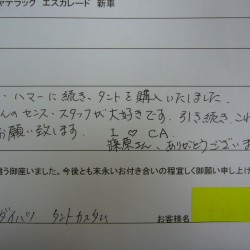 ャデラック　エスカレード　新車
・ハマーに続き、タントを購入いたしました。
んのセンス・スタッフが大好きです。引き続き これ
お願い致します。　I ♡ CA.
篠原さん、ありがとうございま
難う御座いました。今後とも末永いお付き合いの程宜しく御願い申し上げ
ダイハツ　タントカスタム
お客様名